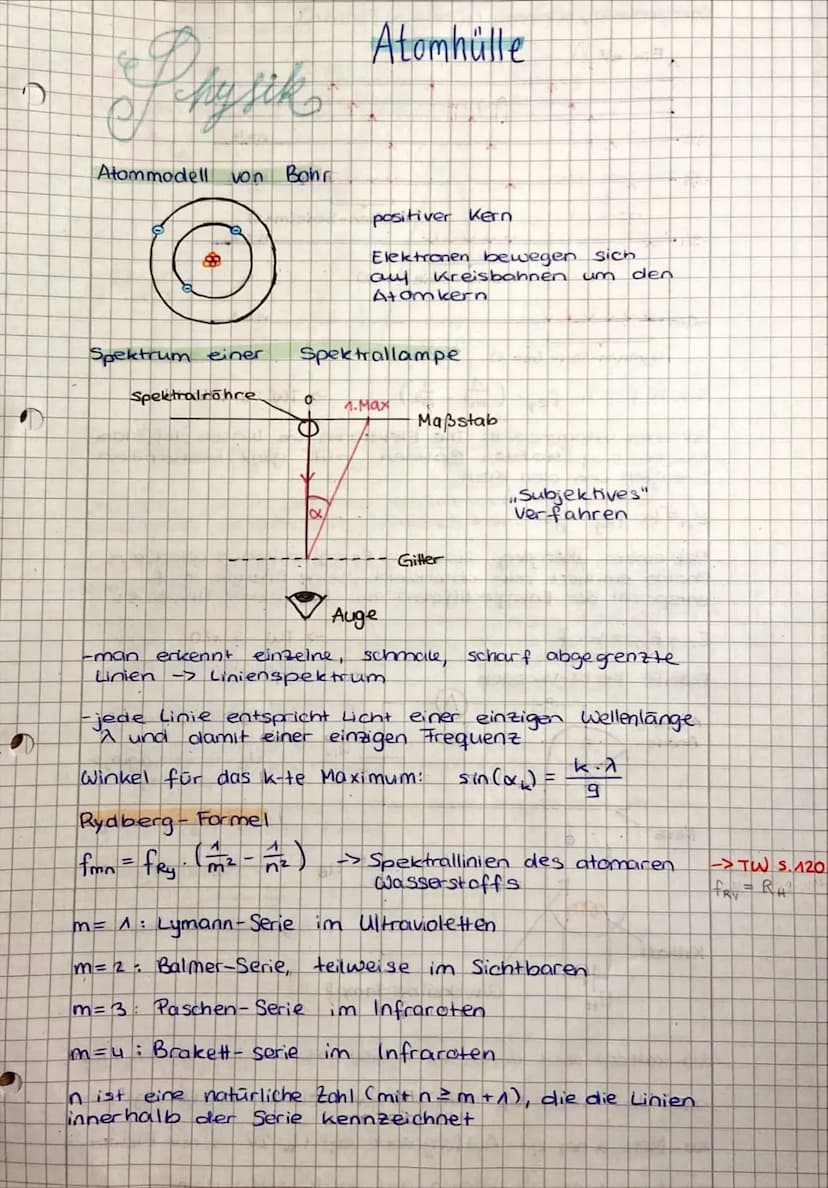 Atomhülle
Physik
Atommodell von Bohr
positiver Kern
Elektronen bewegen sich
auf Kreisbahnen um den
Atomkern
Spektrum einer Spektrallampe
Spektralröhre
0
1.Max
Maßstab
α
„Subjektives"
Verfahren
Gitter
Auge
-man erkennt einzelne, schmale, scharf abgegrenzte
Linien -> Linienspektrum
-jede Linie entspricht Licht einer einzigen Wellenlänge
λ und damit einer einzigen Frequenz
Winkel für das k-te Maximum: sin(αₖ) = k·λ / g
Rydberg-Formel
fmn = fRy · (1/m² - 1/n²) -> Spektrallinien des atomaren
Wasserstoffs
-> TW S.120
fRy = RH
m= 1: Lymann-Serie im Ultravioletten
m= 2: Balmer-Serie, teilweise im Sichtbaren
m= 3: Paschen-Serie im Infraroten
m= 4: Brakett-serie im Infraroten
n ist eine natürliche Zahl (mit n ≥ m + 1), die die Linien
innerhalb der Serie kennzeichnet